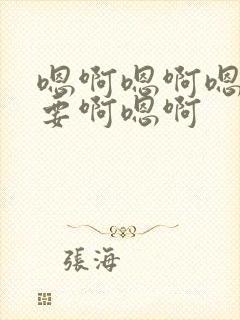 嗯啊嗯啊嗯
要啊嗯啊
張海